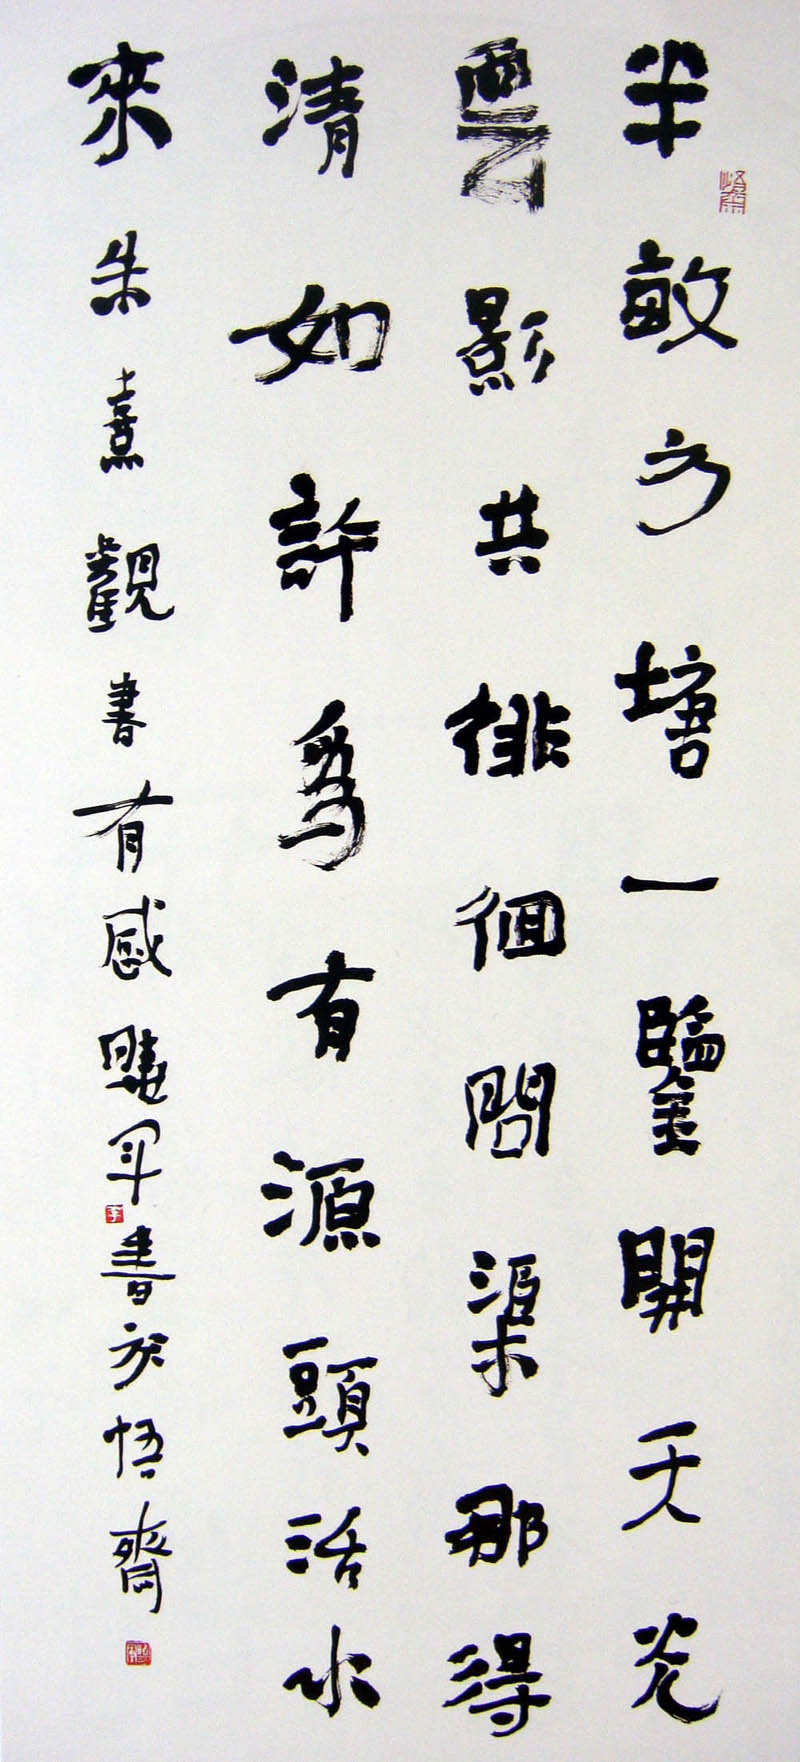 半畝方塘一鑒開天光
雲影共徘徊問渠那得
清如許爲有源頭活水
來朱熹觀書有感曉軍書於悟齋